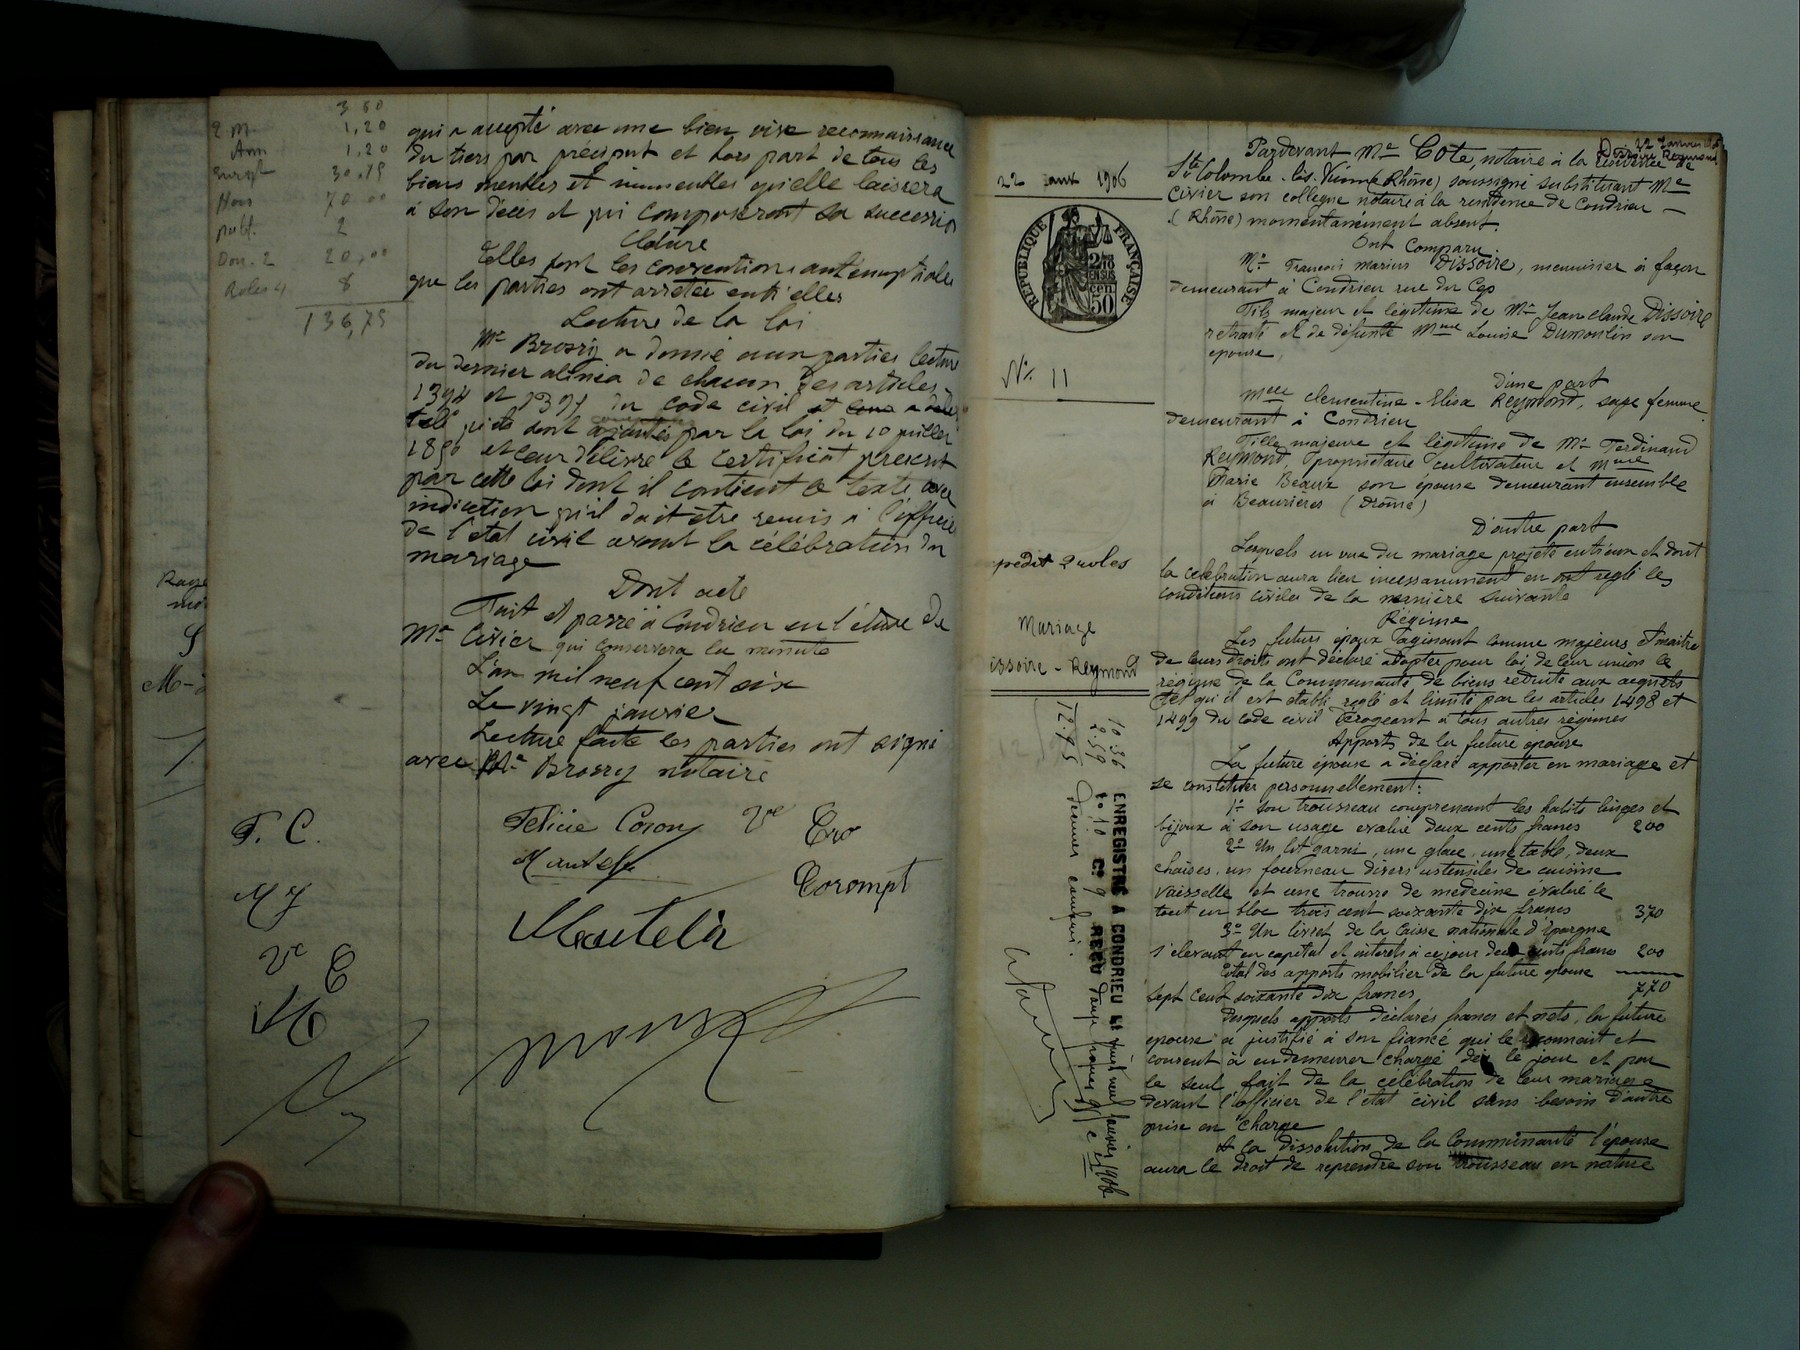 3 60
2 M 1,20
Ann 1.20
Enregt 30.75
Hon 70.00
publ. 2
Don. 2 20,00
Roles 4 8
136,75
qui a accepté avec une bien vive reconnaissance
du tiers par préciput et hors part de tous les
biens meubles et immeubles qu'elle laissera
à son décès et qui composeront sa succession
Clôture
Telles sont les conventions antenuptiales
que les parties ont arrêtées entr'elles
Lecture de la loi
Me Brossy a donné aux parties lecture
du dernier alinéa de chacun des articles
1394 du code civil et
par la loi du 10 juillet
1850 et leur délivre le certificat prescrit
par cette loi dont il contient le texte avec
indication qu'il doit être remis à l'officier
de l'état civil avant la célébration du
mariage
Dont acte
Fait et passé à Condrieu en l'étude de
Me Civier qui conservera la minute
L'an mil neuf cent six
Le vingt janvier
Lecture faite les parties ont signé
avec Me Brossy notaire
F. C.
Felicie Coron Ve Ero
Corompt
Ve C
22 1906
No 11
2 roles
Mariage
issoire - Reymond
10.36
2.59
12.95
ENREGISTRÉ A CONDRIEU LE vingt neuf janvier 1906
fo 10 Co 9 REÇU
22 Janvier
Pardevant Me Cote, notaire à la résidence de
Ste Colombe-lès-Vienne (Rhône) soussigné substituant Me
Civier son collègue notaire à la résidence de Condrieu
(Rhône) momentanément absent.
Ont Comparu
Mr François Marius Dissoire, menuisier à façon
demeurant à Condrieu rue du Cep
Fils majeur et légitime de Mr Jean Claude Dissoire
retraité et de défunte Mme Louise Dumoulin son
épouse,
D'une part
Melle Clementine-Elisa Reymont, sage femme
demeurant à Condrieu
Fille majeure et légitime de Mr Ferdinand
Reymond, propriétaire cultivateur et Mme
Marie Beaux son épouse demeurant ensemble
à Beaurières (Drôme)
D'autre part
Lesquels en vue du mariage projeté entr'eux et dont
la célébration aura lieu incessamment en ont réglé les
conditions civiles de la manière suivante
Régime
Les futurs époux agissant comme majeurs et maitre
de leurs droits ont déclaré adopter pour loi de leur union le
régime de la Communauté de biens réduite aux acquets
tel qu'il est établi, réglé et limité par les articles 1498 et
1499 du code civil dérogeant à tous autres régimes
Apports de la future épouse
La future épouse a déclaré apporter en mariage et
se constituer personnellement:
1o son trousseau comprenant les habits linges et
bijoux à son usage évalué deux cents francs 200
2o Un lit garni, une glace, une table, deux
chaises, un fourneau divers ustensiles de cuisine
vaisselle et une trousse de medecine évalué le
tout en bloc trois cent soixante dix francs 370
3o Un livret de la Caisse nationale d'Epargne
s'élevant en capital et intérêts à ce jour deux cents francs 200
Total des apports mobilier de la future épouse
sept cent soixante dix francs 770
Desquels apports déclarés francs et nets, la future
épouse a justifié à son fiancé qui le reconnait et
consent à en demeurer chargé dès le jour et par
le seul fait de la célébration de leur mariage
devant l'officier de l'état civil sans besoin d'autre
prise en charge
A la dissolution de la Communauté l'épouse
aura le droit de reprendre son trousseau en nature